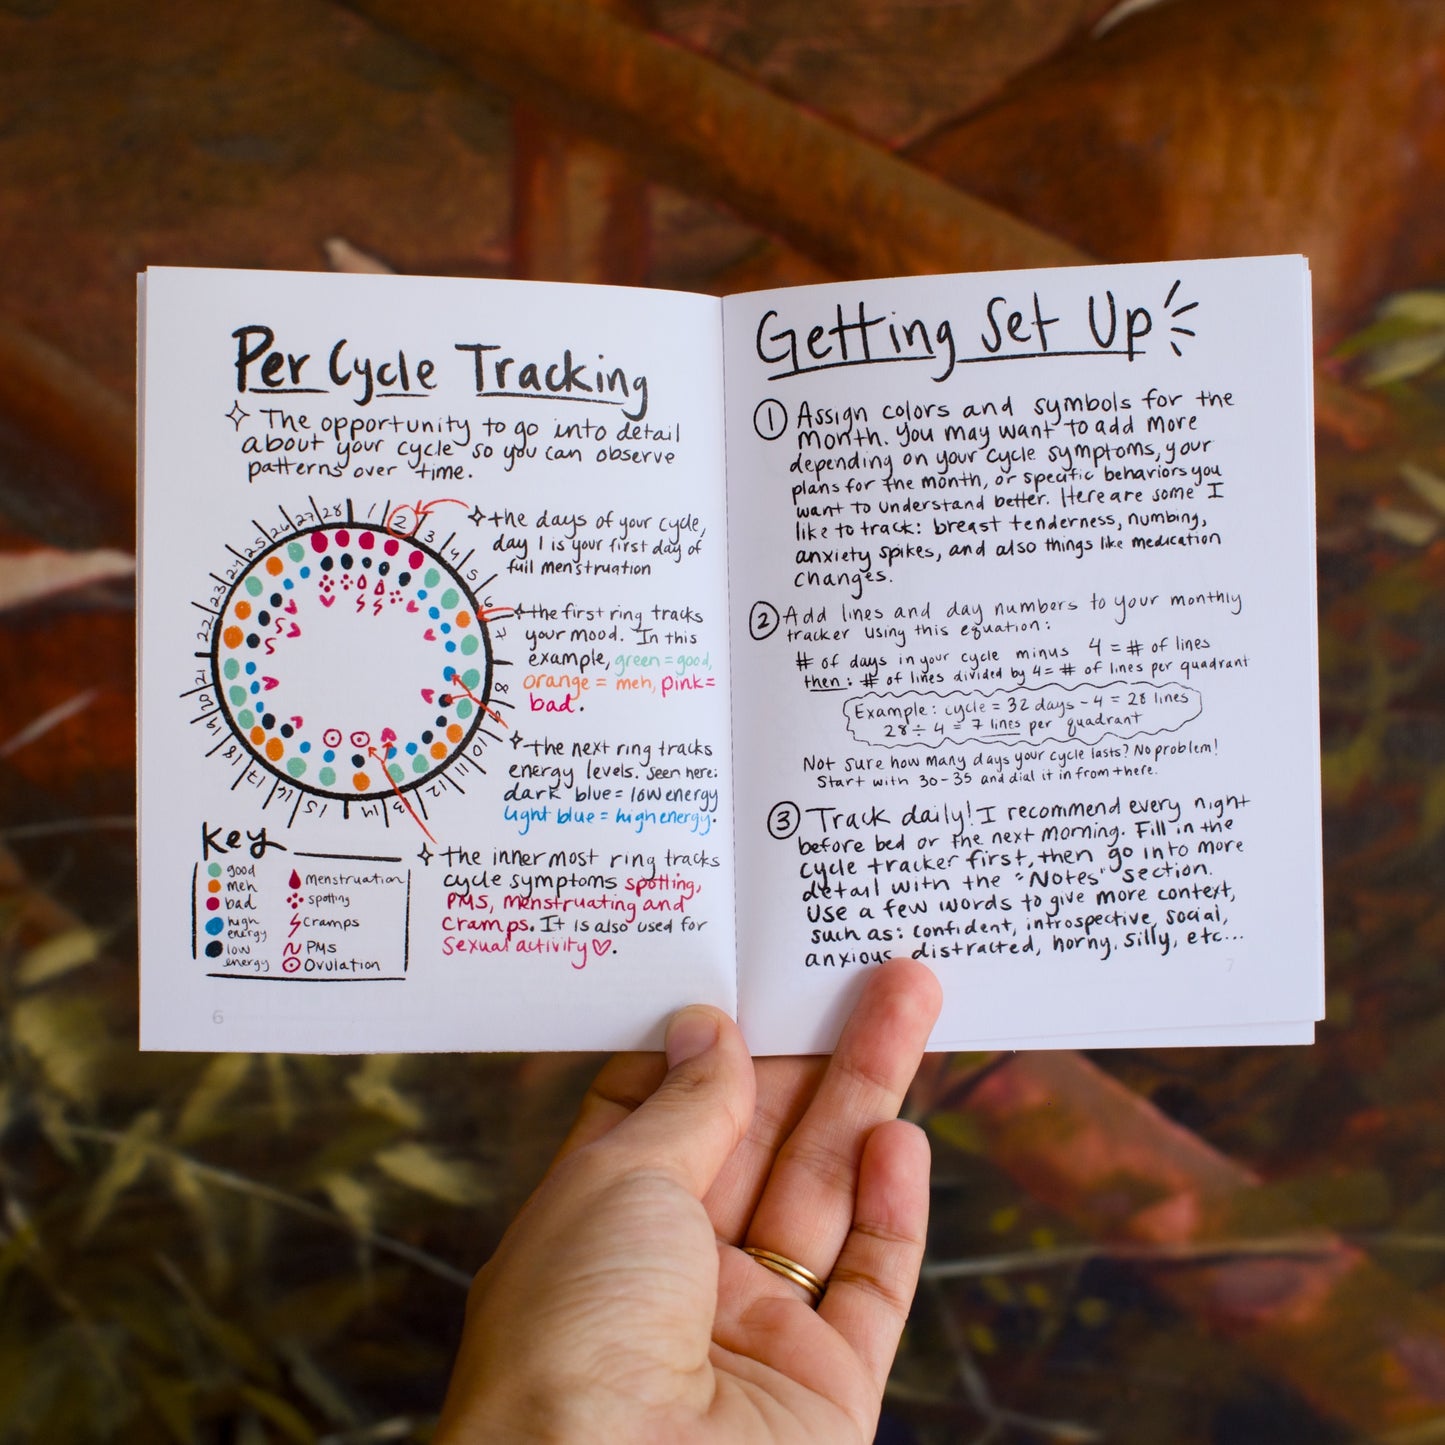 Per Cycle Tracking
The opportunity to go into detail
about your cycle so you can observe
patterns over time.
1
2
3
4
5
6
7
8
9
10
11
12
13
14
15
16
17
18
19
20
21
22
23
24
25
26
27
28
the days of your cycle,
day 1 is your first day of
full menstruation
the first ring tracks
your mood. In this
example, green = good,
orange = meh, pink =
bad.
the next ring tracks
energy levels. Seen here:
dark blue = low energy
light blue = high energy.
the inner most ring tracks
cycle symptoms spotting,
PMS, menstruating and
cramps. It is also used for
sexual activity ♡.
Key
good
meh
bad
high
energy
low
energy
menstruation
spotting
cramps
PMS
Ovulation
6
Getting Set Up
1 Assign colors and symbols for the
month. You may want to add more
depending on your cycle symptoms, your
plans for the month, or specific behaviors you
want to understand better. Here are some I
like to track: breast tenderness, numbing,
anxiety spikes, and also things like medication
changes.
2 Add lines and day numbers to your monthly
tracker using this equation:
# of days in your cycle minus 4 = # of lines
then: # of lines divided by 4 = # of lines per quadrant
Example: cycle = 32 days - 4 = 28 lines
28 ÷ 4 = 7 lines per quadrant
Not sure how many days your cycle lasts? No problem!
Start with 30-35 and dial it in from there.
3 Track daily! I recommend every night
before bed or the next morning. Fill in the
cycle tracker first, then go into more
detail with the "Notes" section.
Use a few words to give more context,
such as: confident, introspective, social,
anxious, distracted, horny, silly, etc...
7